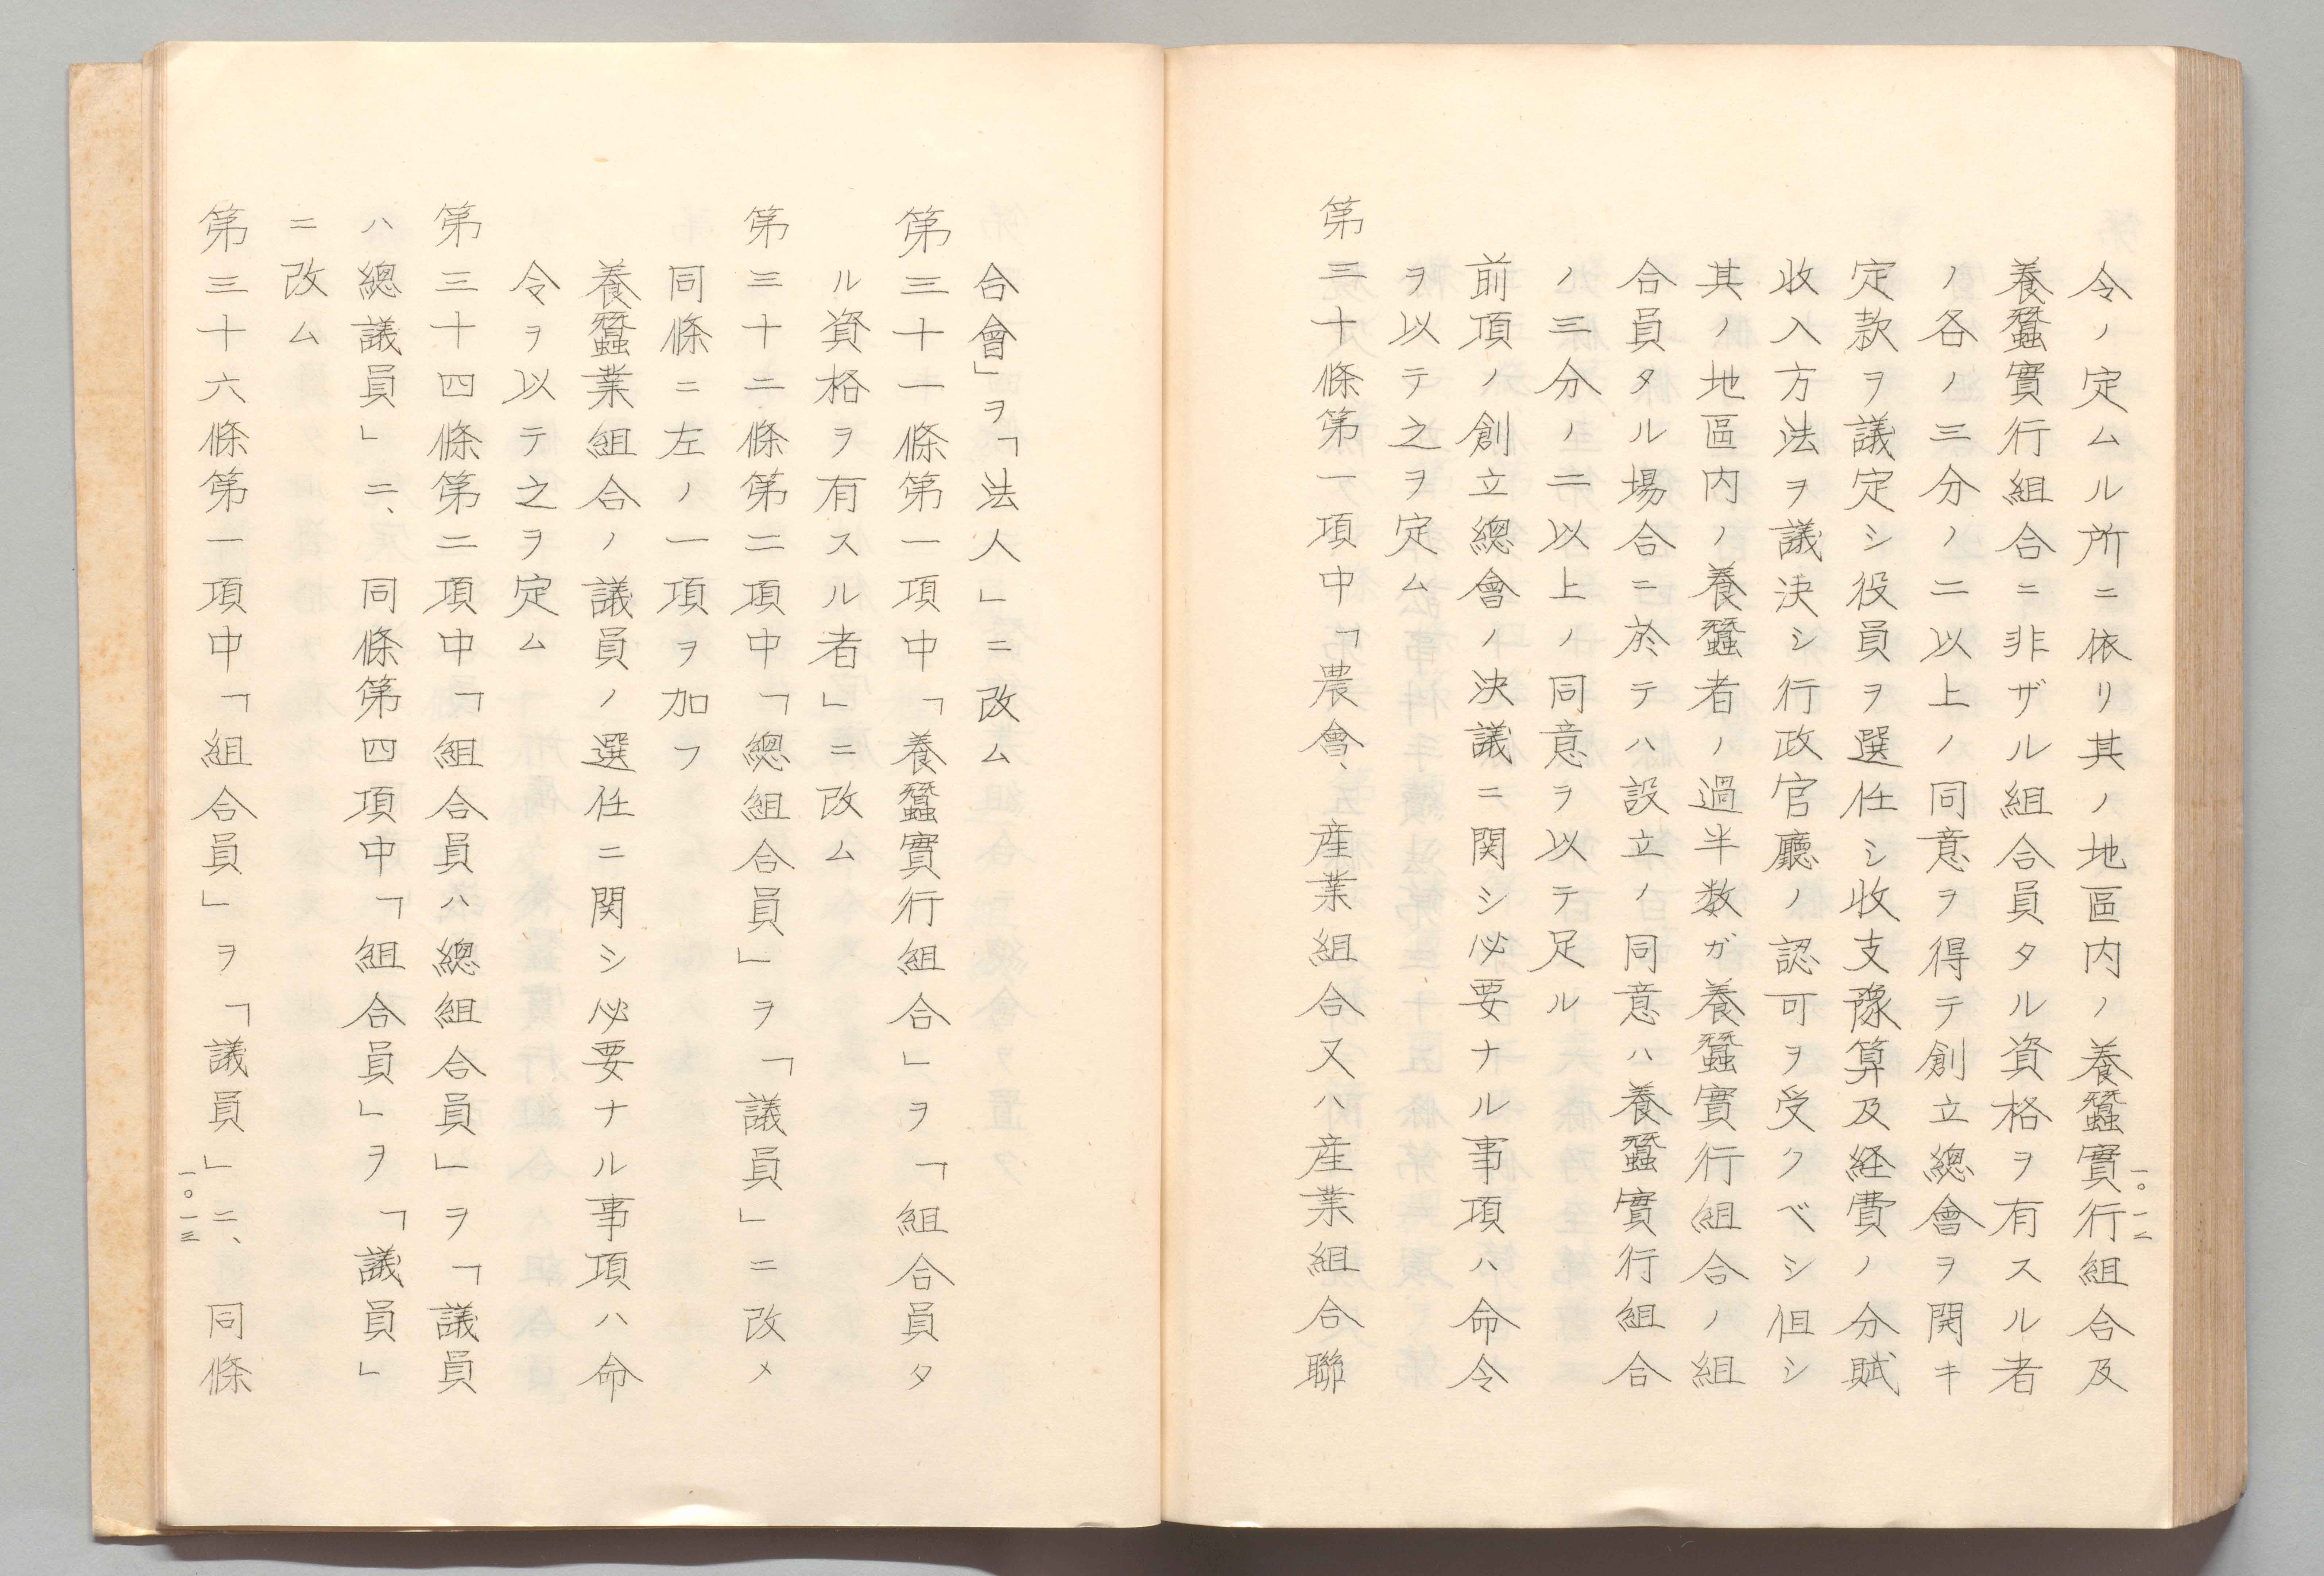 令ノ定ムル所ニ依リ其ノ地區内ノ養蠶實行組合及
養蠶實行組合ニ非ザル組合員タル資格ヲ有スル者
ノ各ノ三分ノ二以上ノ同意ヲ得テ創立總會ヲ開キ
定款ヲ議定シ役員ヲ選任シ收支豫算及経費ノ分賦
收入方法ヲ議決シ行政官廳ノ認可ヲ受クベシ但シ
其ノ地區内ノ養蠶者ノ過半数ガ養蠶實行組合ノ組
合員タル場合ニ於テハ設立ノ同意ハ養蠶實行組合
ノ三分ノ二以上ノ同意ヲ以テ足ル
前項ノ創立總會ノ決議ニ関シ必要ナル事項ハ命令
ヲ以テ之ヲ定ム
第三十條第一項中「農會、産業組合又ハ産業組合聯
一〇一二
合會」ヲ「法人」ニ改ム
第三十一條第一項中「養蠶實行組合」ヲ「組合員タ
ル資格ヲ有スル者」ニ改ム
第三十二條第二項中「總組合員」ヲ「議員」ニ改メ
同條ニ左ノ一項ヲ加フ
養蠶業組合ノ議員ノ選任ニ関シ必要ナル事項ハ命
令ヲ以テ之ヲ定ム
第三十四條第二項中「組合員ハ總組合員」ヲ「議員
ハ總議員」ニ、同條第四項中「組合員」ヲ「議員」
ニ改ム
第三十六條第一項中「組合員」ヲ「議員」ニ、同條
一〇一三